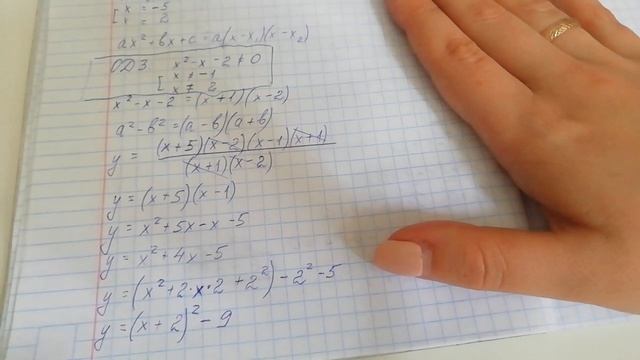 [ x = -5
x = 2
ax² + bx + c = a(x - x₁)(x - x₂)
ОДЗ: x² - x - 2 ≠ 0
[ x ≠ -1
x ≠ 2
x² - x - 2 = (x + 1)(x - 2)
a² - b² = (a - b)(a + b)
y = (x + 5)(x - 2)(x - 1)(x + 1) / (x + 1)(x - 2)
y = (x + 5)(x - 1)
y = x² + 5x - x - 5
y = x² + 4x - 5
y = (x² + 2·x·2 + 2²) - 2² - 5
y = (x + 2)² - 9